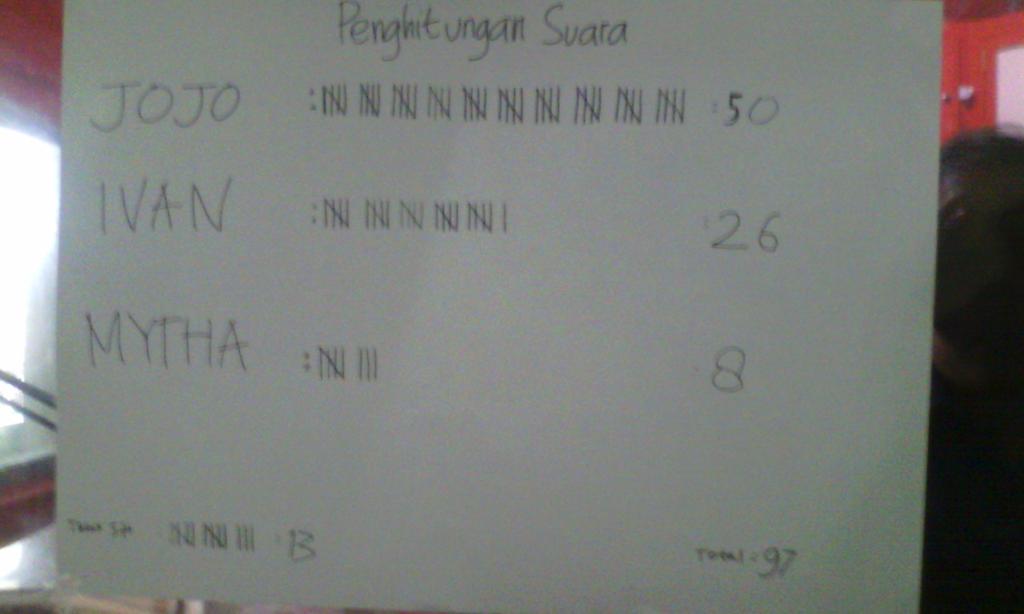 Penghitungan Suara
JOJO : 50
IVAN : 26
MYTHA : 8
: 13
Total : 97